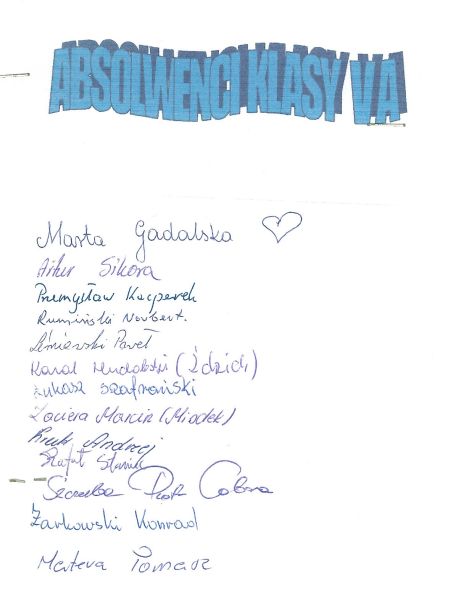 ABSOLWENCI KLASY V A
Marta Gadalska
Artur Sikora
Przemysław Kacperek
Rumiński Norbert.
Leśniewski Paweł
Karol (Ździch)
Łukasz Szafrański
Zaviera Marcin (Miodek)
Andrzej
Rafał
Piotr Cobra
Żarkowski Konrad
Matera Tomasz